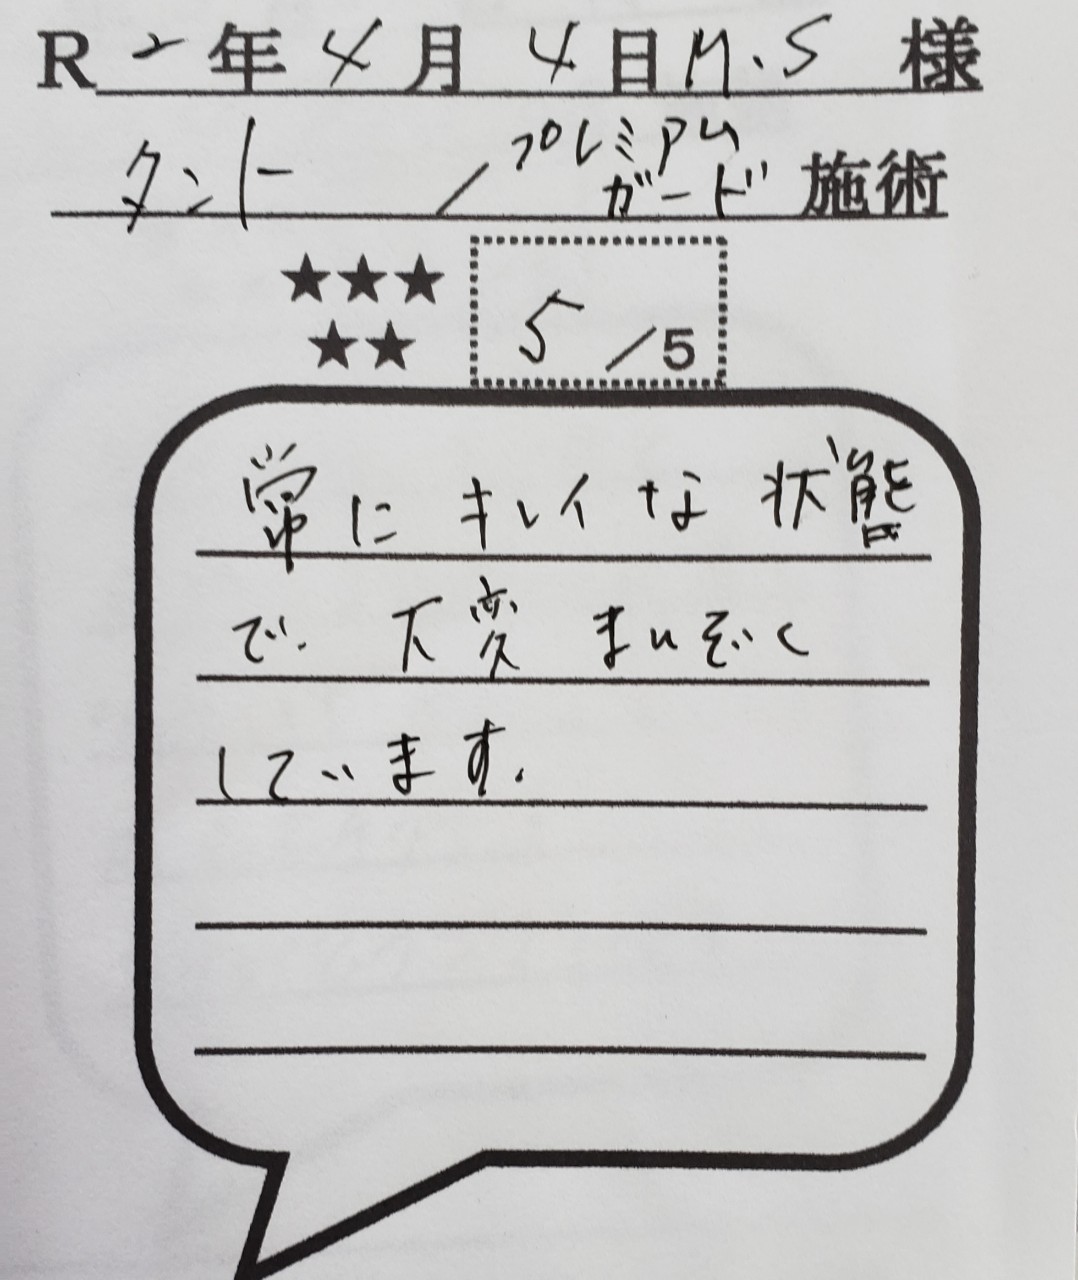 R 2年 4月 4日 M.S 様
タント / プレミアム
ガード 施術
★★★
★★
5 /5
常に キレイな 状態
で 大変 まんぞく
しています.